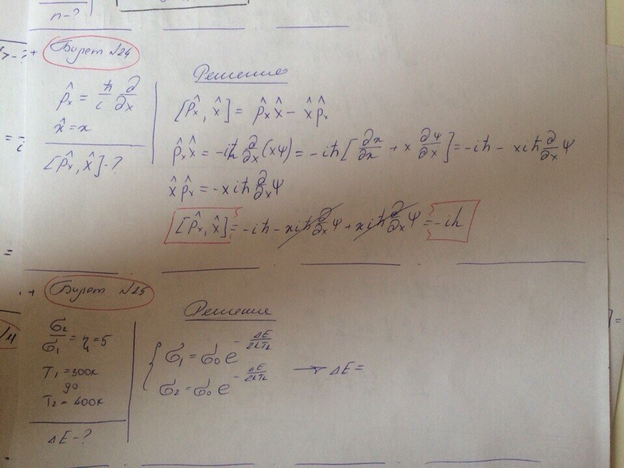 n-?
Билет №24
p̂ₓ = ħ/i ∂/∂x
x̂ = x
[p̂ₓ, x̂]-?
Решение
[p̂ₓ, x̂] = p̂ₓx̂ - x̂p̂ₓ
p̂ₓx̂ = -iħ ∂/∂x (xψ) = -iħ[∂x/∂x + x ∂ψ/∂x] = -iħ - xiħ ∂/∂x ψ
x̂p̂ₓ = -xiħ ∂/∂x ψ
[p̂ₓ, x̂] = -iħ - xiħ ∂/∂x ψ + xiħ ∂/∂x ψ = -iħ
Билет №25
σ₂/σ₁ = η = 5
T₁ = 300K
до
T₂ = 400K
ΔE-?
Решение
σ₁ = σ₀ e^(-ΔE/2kT₁)
σ₂ = σ₀ e^(-ΔE/2kT₂) → ΔE =